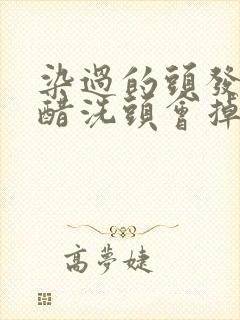 染過的頭發
醋洗頭會掉
高夢婕